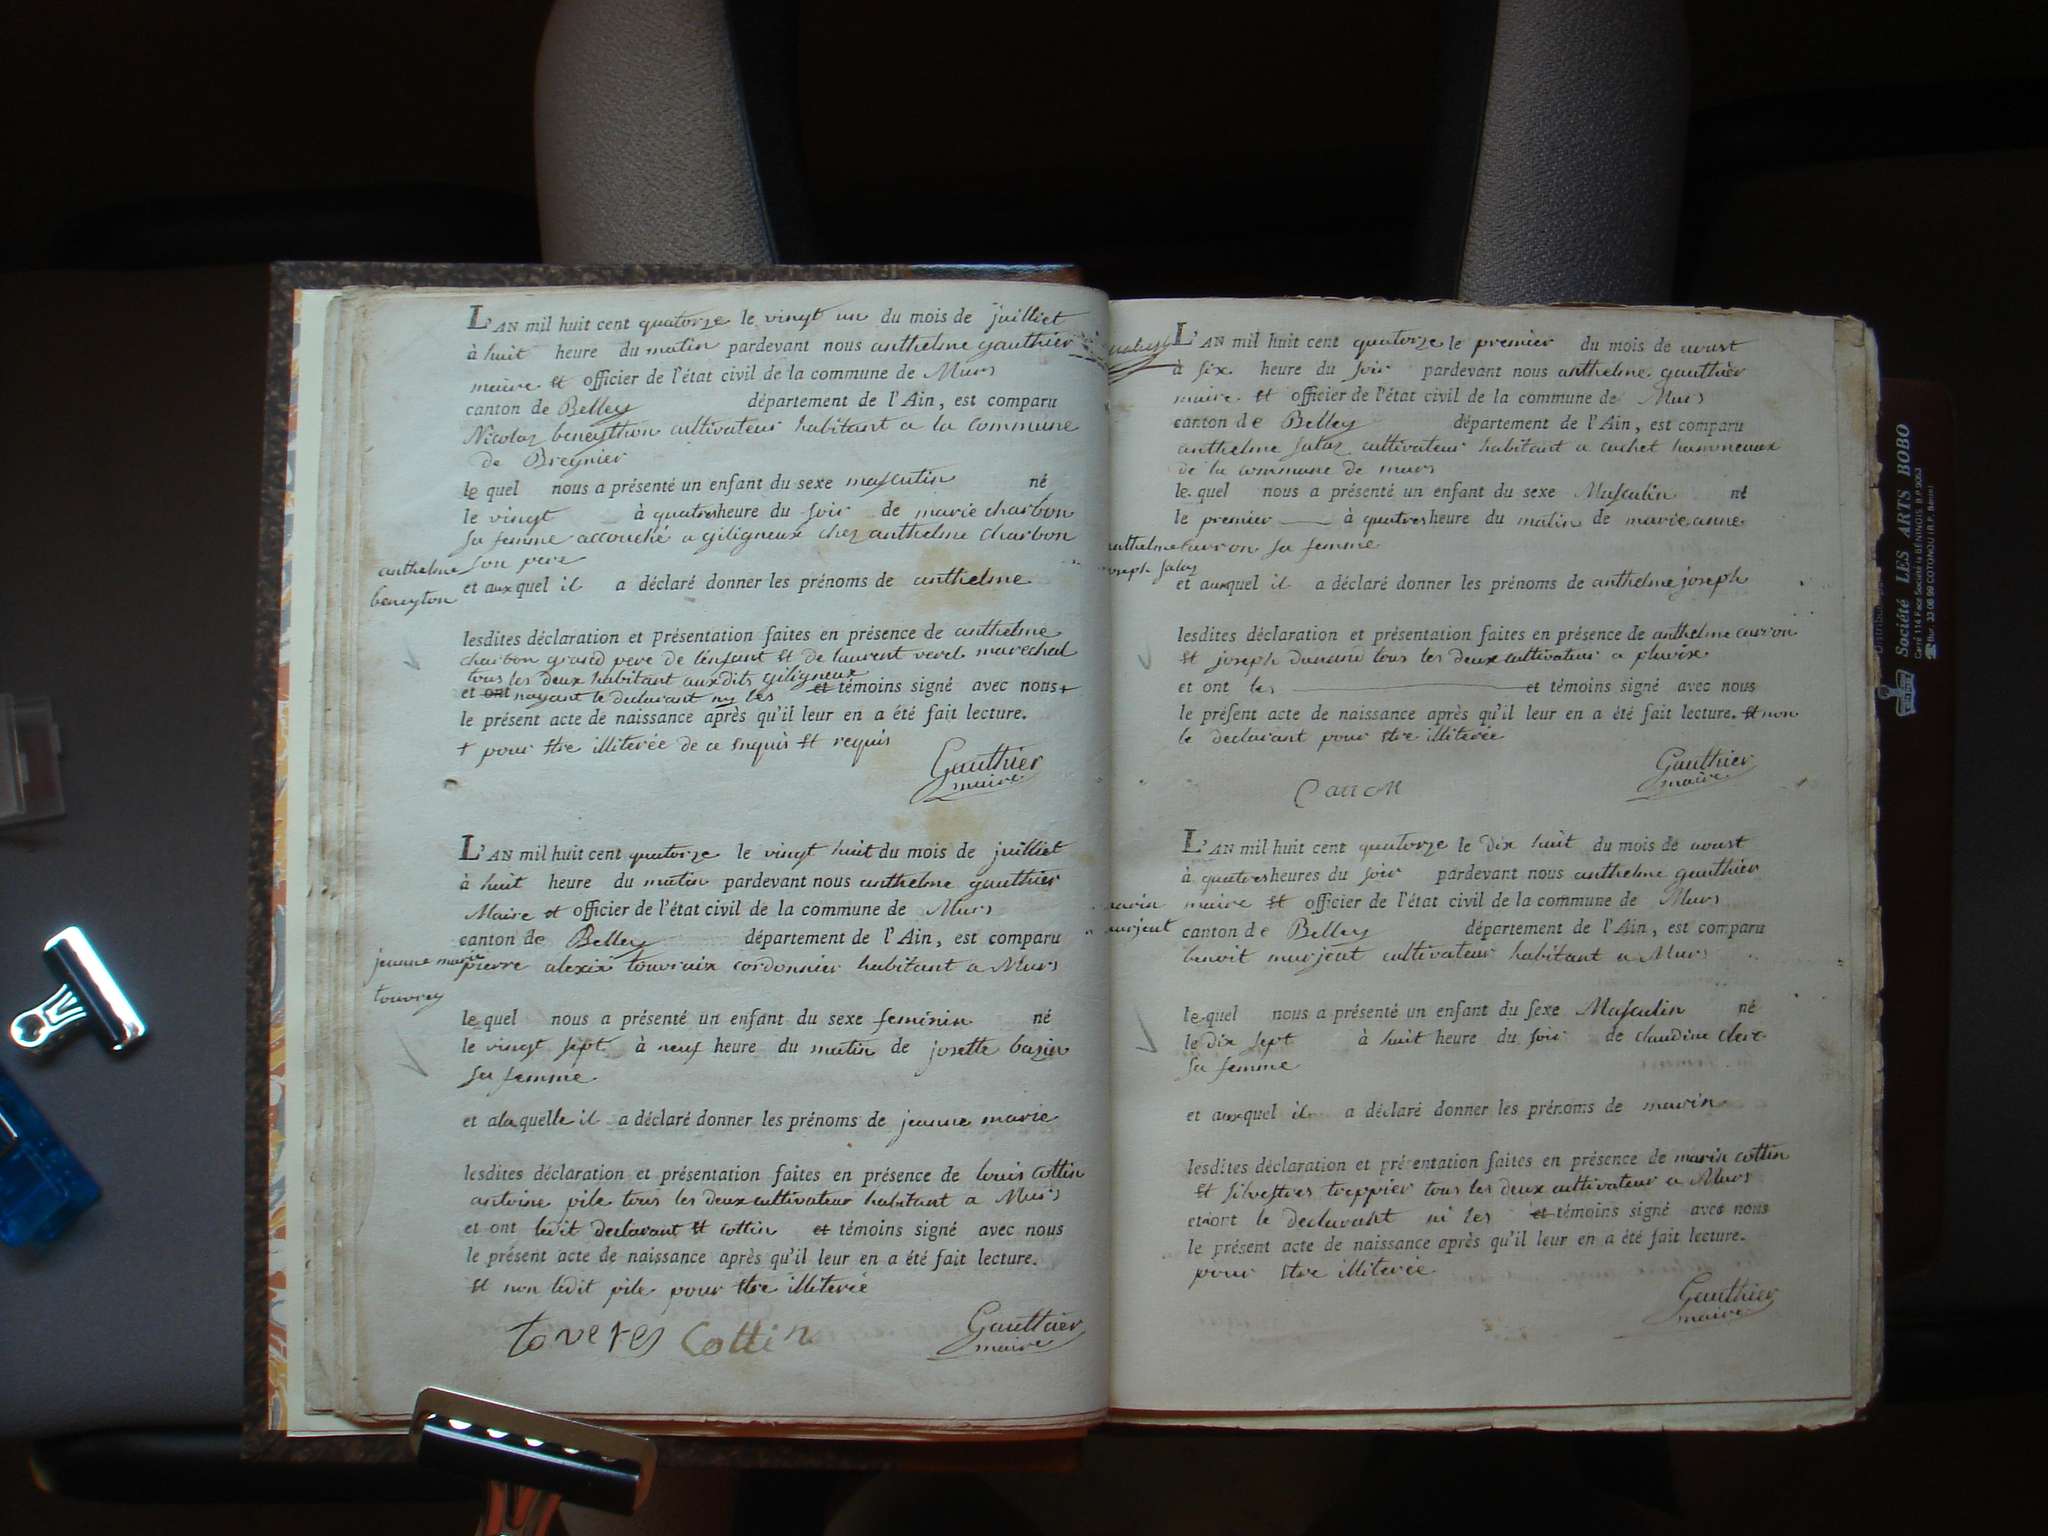 L'AN mil huit cent quatorze le vingt un du mois de juilliet
à huit heure du matin pardevant nous anthelme gauthier
maire et officier de l'état civil de la commune de Murs
canton de Belley département de l'Ain, est comparu
Nicolas beneython cultivateur habitant a la commune
de Bregnier
le quel nous a présenté un enfant du sexe masculin né
le vingt à quatres heure du soir de marie charbon
sa femme accouché a giligneux chez anthelme charbon
son pere
anthelme
beneyton
et aux quel il a déclaré donner les prénoms de anthelme
lesdites déclaration et présentation faites en présence de anthelme
charbon grand pere de lenfant et de laurent veret marechal
tous les deux habitant auxdits giligneux
et ont nayant le declarant ny les et témoins signé avec nous +
le présent acte de naissance après qu'il leur en a été fait lecture.
+ pour etre illiterée de ce enquis et requis
Gauthier
maire
L'AN mil huit cent quatorze le vingt huit du mois de juilliet
à huit heure du matin pardevant nous anthelme gauthier
Maire et officier de l'état civil de la commune de Murs
canton de Belley département de l'Ain, est comparu
jeanne marie
touvrey
pierre alexix touvraix cordonnier habitant a Murs
le quel nous a présenté un enfant du sexe feminin né
le vingt sept à neuf heure du matin de josette bazin
sa femme
et a laquelle il a déclaré donner les prénoms de jeanne marie
lesdites déclaration et présentation faites en présence de louis cottin
antoine pile tous les deux cultivateur habitant a Murs
et ont ledit declarant et cottin et témoins signé avec nous
le présent acte de naissance après qu'il leur en a été fait lecture.
et non ledit pile pour etre illiterée
toveres Cottin
Gauthier
maire
L'AN mil huit cent quatorze le premier du mois de aoust
à six heure du soir pardevant nous anthelme gauthier
maire et officier de l'état civil de la commune de Murs
canton de Belley département de l'Ain, est comparu
anthelme salaz cultivateur habitant a cuchet hammeaux
de la commune de murs
le quel nous a présenté un enfant du sexe Masculin né
le premier à quatres heure du matin de marie anne
curron sa femme
anthelme
joseph salaz
et aux quel il a déclaré donner les prénoms de anthelme joseph
lesdites déclaration et présentation faites en présence de anthelme curron
et joseph dunand tous les deux cultivateur a pluvix
et ont les et témoins signé avec nous
le présent acte de naissance après qu'il leur en a été fait lecture. et non
le declarant pour etre illiterée
Carron
Gauthier
maire
L'AN mil huit cent quatorze le dix huit du mois de aoust
à quatres heures du soir pardevant nous anthelme gauthier
marin
murjeat
maire et officier de l'état civil de la commune de Murs
canton de Belley département de l'Ain, est comparu
benoit murjeat cultivateur habitant a Murs
le quel nous a présenté un enfant du sexe Masculin né
le dix sept à huit heure du soir de claudine clerc
sa femme
et aux quel il a déclaré donner les prénoms de marin
lesdites déclaration et présentation faites en présence de marin cottin
et silvestres treppier tous les deux cultivateur a Murs
et nont le declarant ni les et témoins signé avec nous
le présent acte de naissance après qu'il leur en a été fait lecture.
pour etre illiterée
Gauthier
maire
Société LES ARTS BOBO